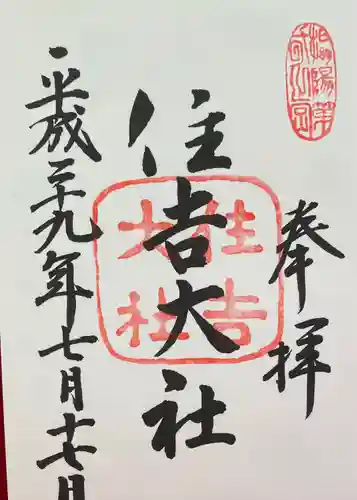 奉拝
住吉大社
平成二十九年七月十七日
住吉
大社